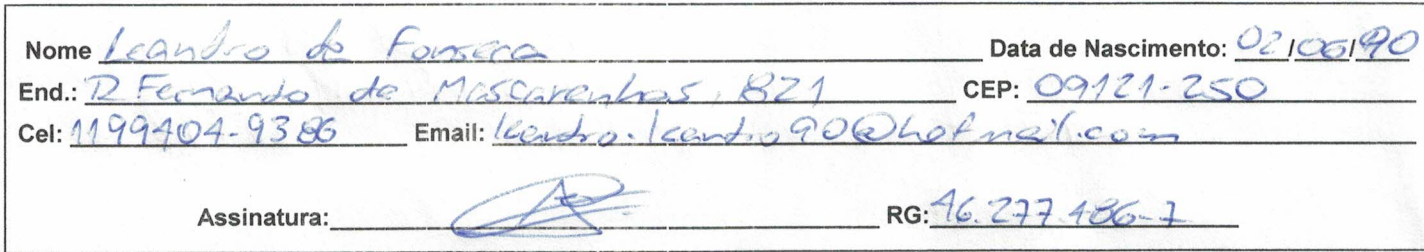 Nome Leandro da Fonseca Data de Nascimento: 02/06/90
End.: R Fernando de Mascarenhas, 821 CEP: 09121-250
Cel: 1199404-9386 Email: leandro.leandro90@hotmail.com
Assinatura: RG: 46.277.486-7